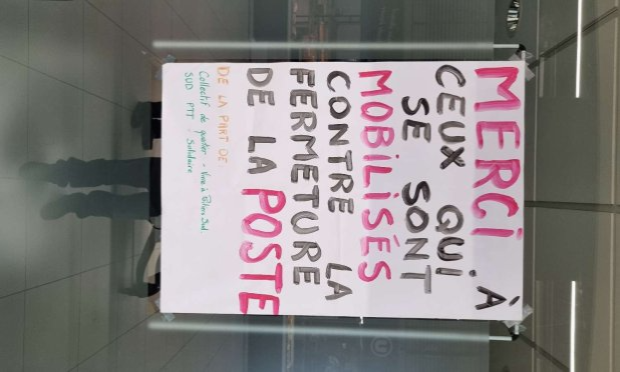 MERCI À
CEUX QUI
SE SONT
MOBILISÉS
CONTRE LA
FERMETURE
DE LA POSTE
DE LA PART DE
Collectif de quartier - Vivre à
SUD PTT : Solidaire